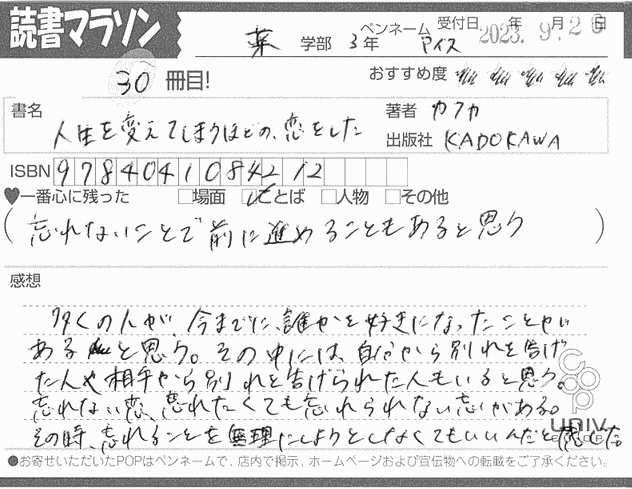 読書マラソン
薬 学部 3年 ペンネーム アイス 受付日 2023.9.26 年 月 日
30 冊目! おすすめ度
書名 人生を変えてしまうほどの、恋をした 著者 カフカ
出版社 KADOKAWA
ISBN 9784041084212
♥一番心に残った □場面 ☑ことば □人物 □その他
(忘れないことで前に進めることもあると思う)
感想
多くの人が、今までに、誰かを好きになったことが
あると思う。その中には、自分から別れを告げ
た人や相手から別れを告げられた人もいると思う。
忘れない恋、忘れたくても忘れられない恋がある。
その時、忘れることを無理にしようとしなくてもいいんだと感じた
coop univ.
●お寄せいただいたPOPはペンネームで、店内で掲示、ホームページおよび宣伝物への転載をご了承ください。